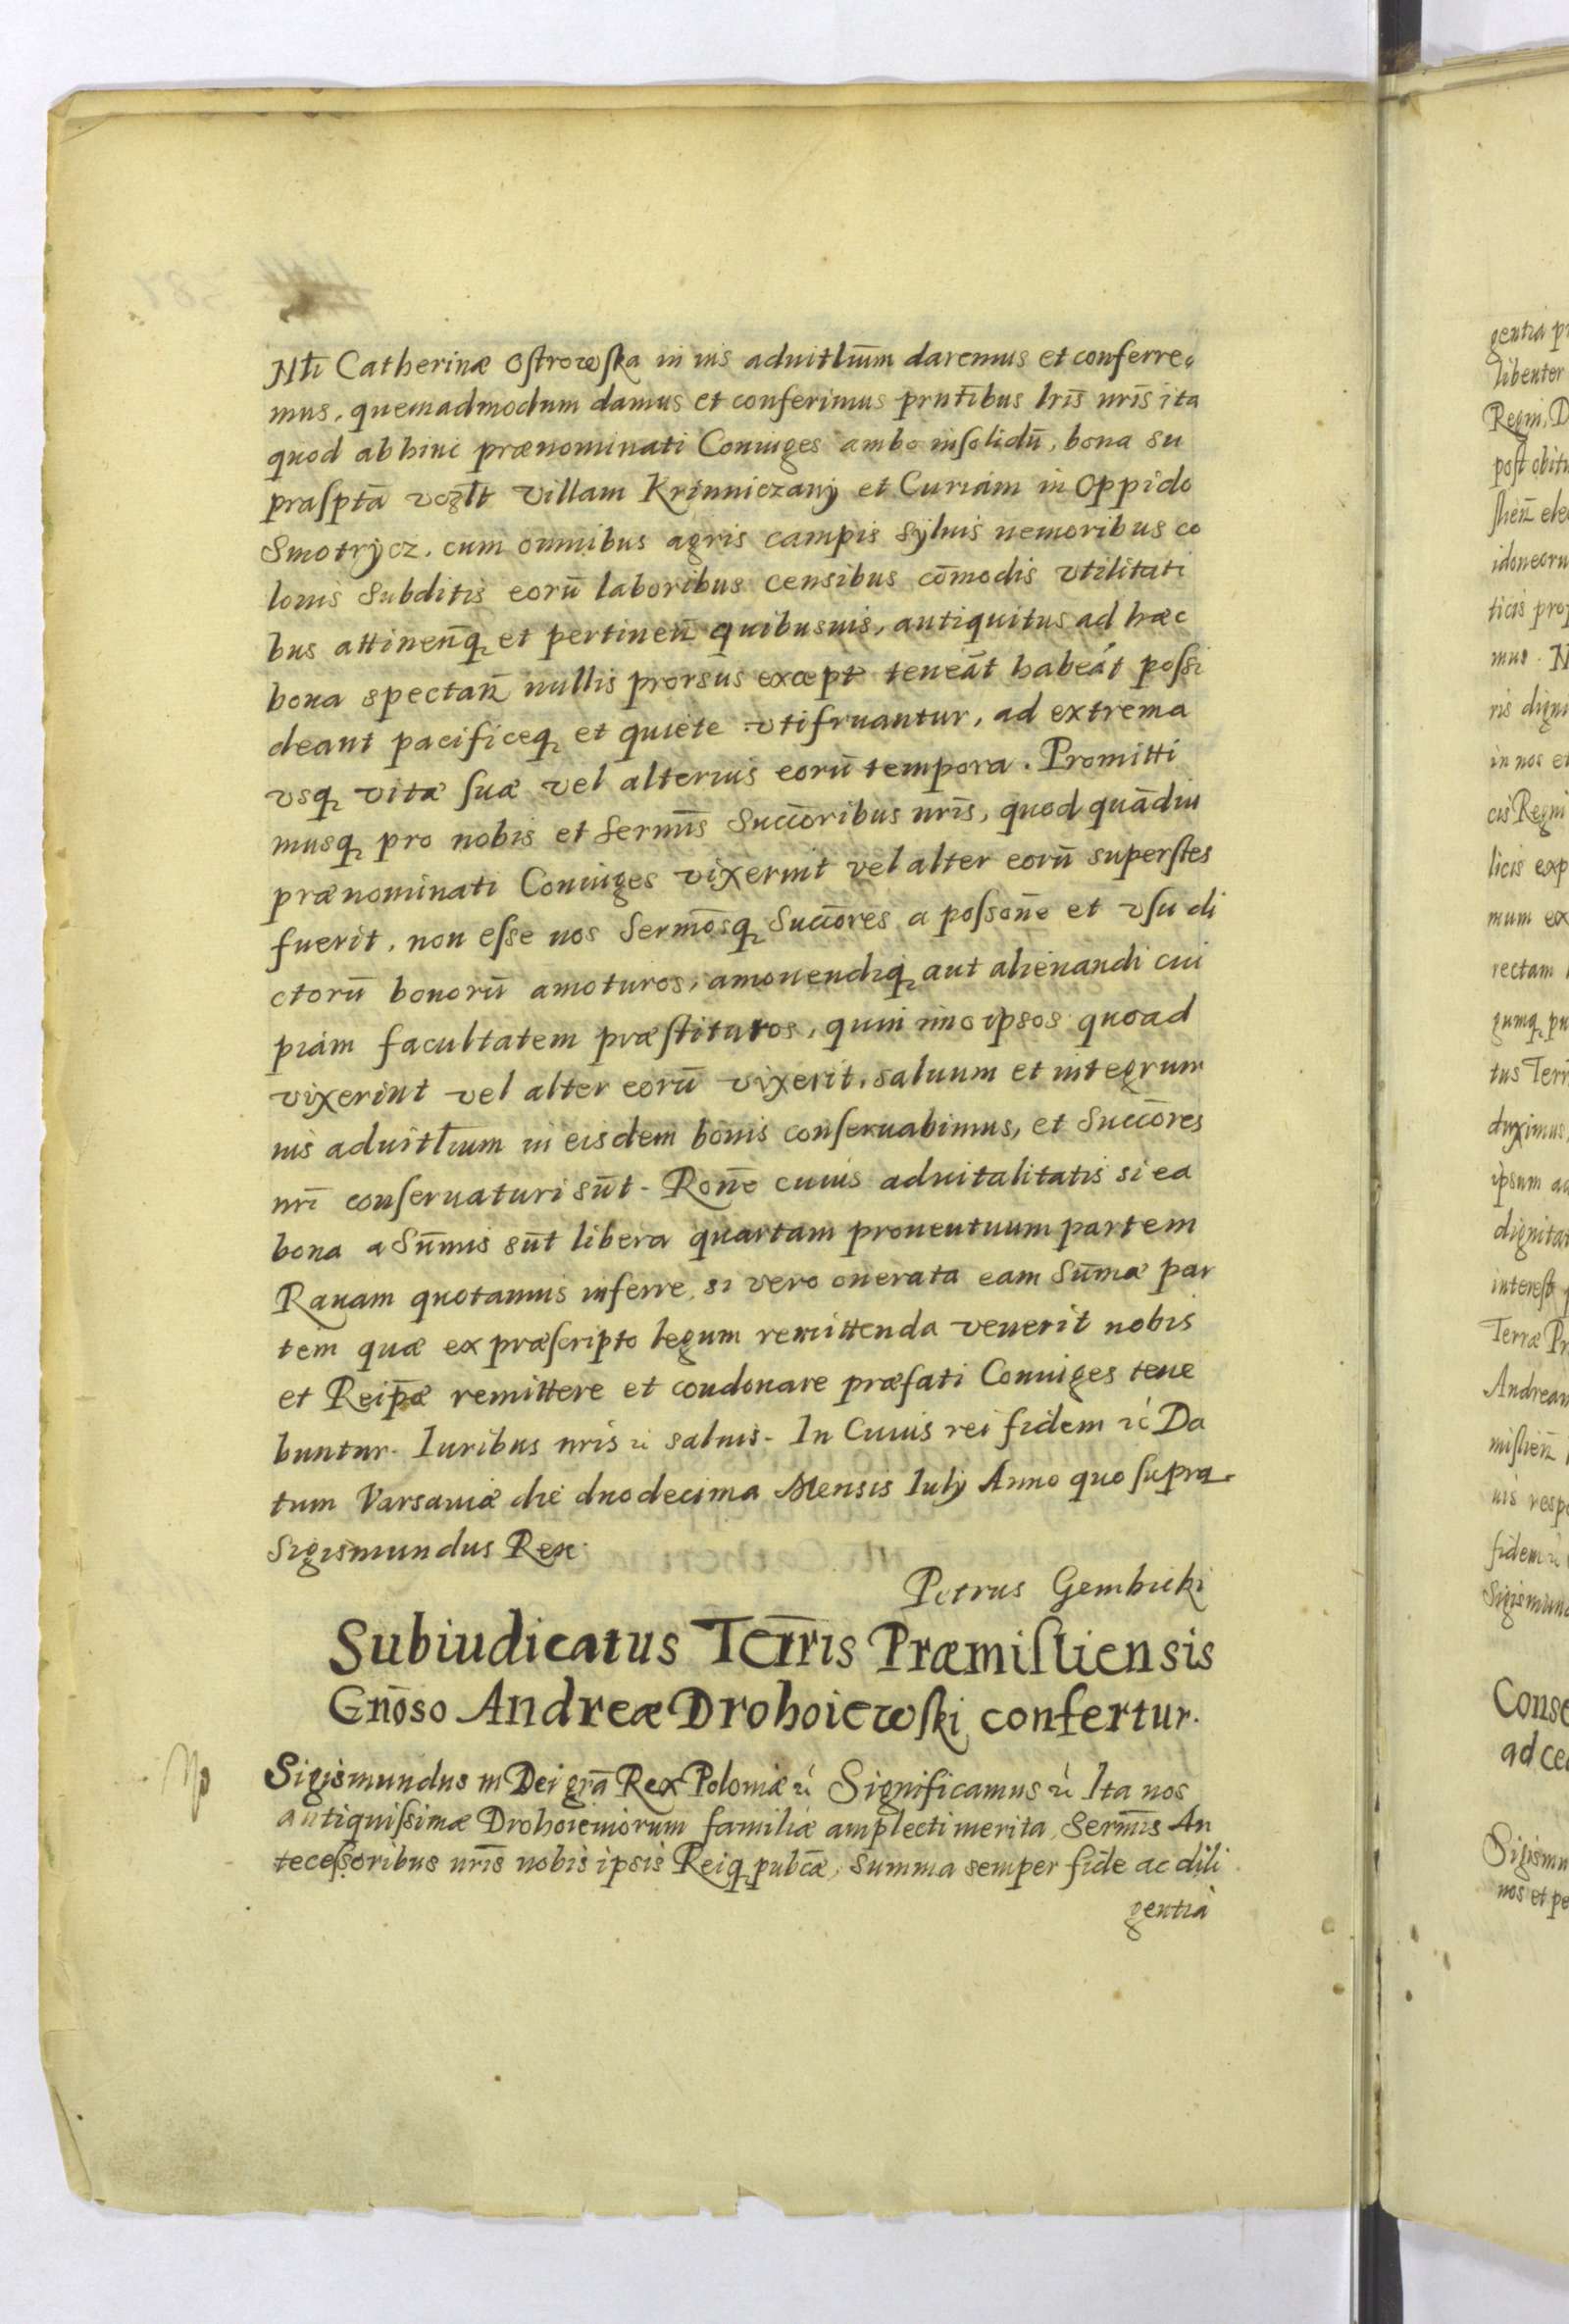 Nłi Catherinæ Ostrowska in ius aduitłiūm daremus et conferre,
mus, quemadmodum damus et conferimus prntībus lrīs nrīs ita
quod ab hinc prænominati Coniuges ambo insolidū, bona su
praſptā vczlt villam Krinniczany et Curiam in Oppido
Smotrÿcz, cum omnibus agris campis syluis nemoribus co
lonis Subditis eorū laboribus censibus cōmodis vtilitati
bus attinenq̨ et pertineñ quibusuis, antiquitus ad hæc
bona spectañ nullis prorsus except teneāt habeāt poſsi
deant pacificeq̨ et quiete vtifruantur, ad extrema
vsq̨ vitæ ſuæ vel alterius eorū tempora. Promitti
musq̨ pro nobis et Sermīs Succōribus nrīs, quod quādiu
prænominati Coniuges vixerint vel alter eorū superſtes
fuerit, non eſse nos Sermōsq̨ Succōres a poſsonē et vſu di
ctorū bonorū amoturos, amouendiq̨ aut alienandi cui
piam facultatem præſtituros, quin imo ipsos quoad
vixerint vel alter eorū vixerit, saluum et integrum
ius aduitłium in eisdem bonis conſeruabimus, et Succōres
nrī conſeruaturi sūt. Ronē cuius aduitalitatis si ea
bona a Sūmis sūt libera quartam prouentuum partem
Rauam quotannis inferre, si vero onerata eam Sūmæ par
tem quæ ex præſcripto legum remittenda venerit nobis
et Reipæ remittere et condonare præfati Coniuges tene
buntur. Iuribus nris ꝛć saluis. In Cuius rei fidem ꝛć Da
tum Varsauiæ die duodecima Mensis Iulÿ Anno quo ſupra.
Sigismundus Rex.
Petrus Gembicki
Subiudicatus Terrīs Præmiſliensis
Gnōso Andreæ Drohoiewſki confertur.
Sigismundus III Dei grā Rex Poloniæ ꝛć Significamus ꝛć Ita nos
antiquiſsimæ Drohoieuiorum familiæ amplecti merita, Sermīs An
teceſsoribus nrīs nobis ipsis Reiq̨ pubcæ, Summa semper fide ac dili
gentia
gentia
libenter
post obitu
idoneoru
ticis
mus. N
in nos et
cis Regni
licis exp
mum ex
rectam
tus Terr
duximus,
ipsum
intereſt
Terræ Pr
Andream
Conse
ad
Sigismu
nos et pe